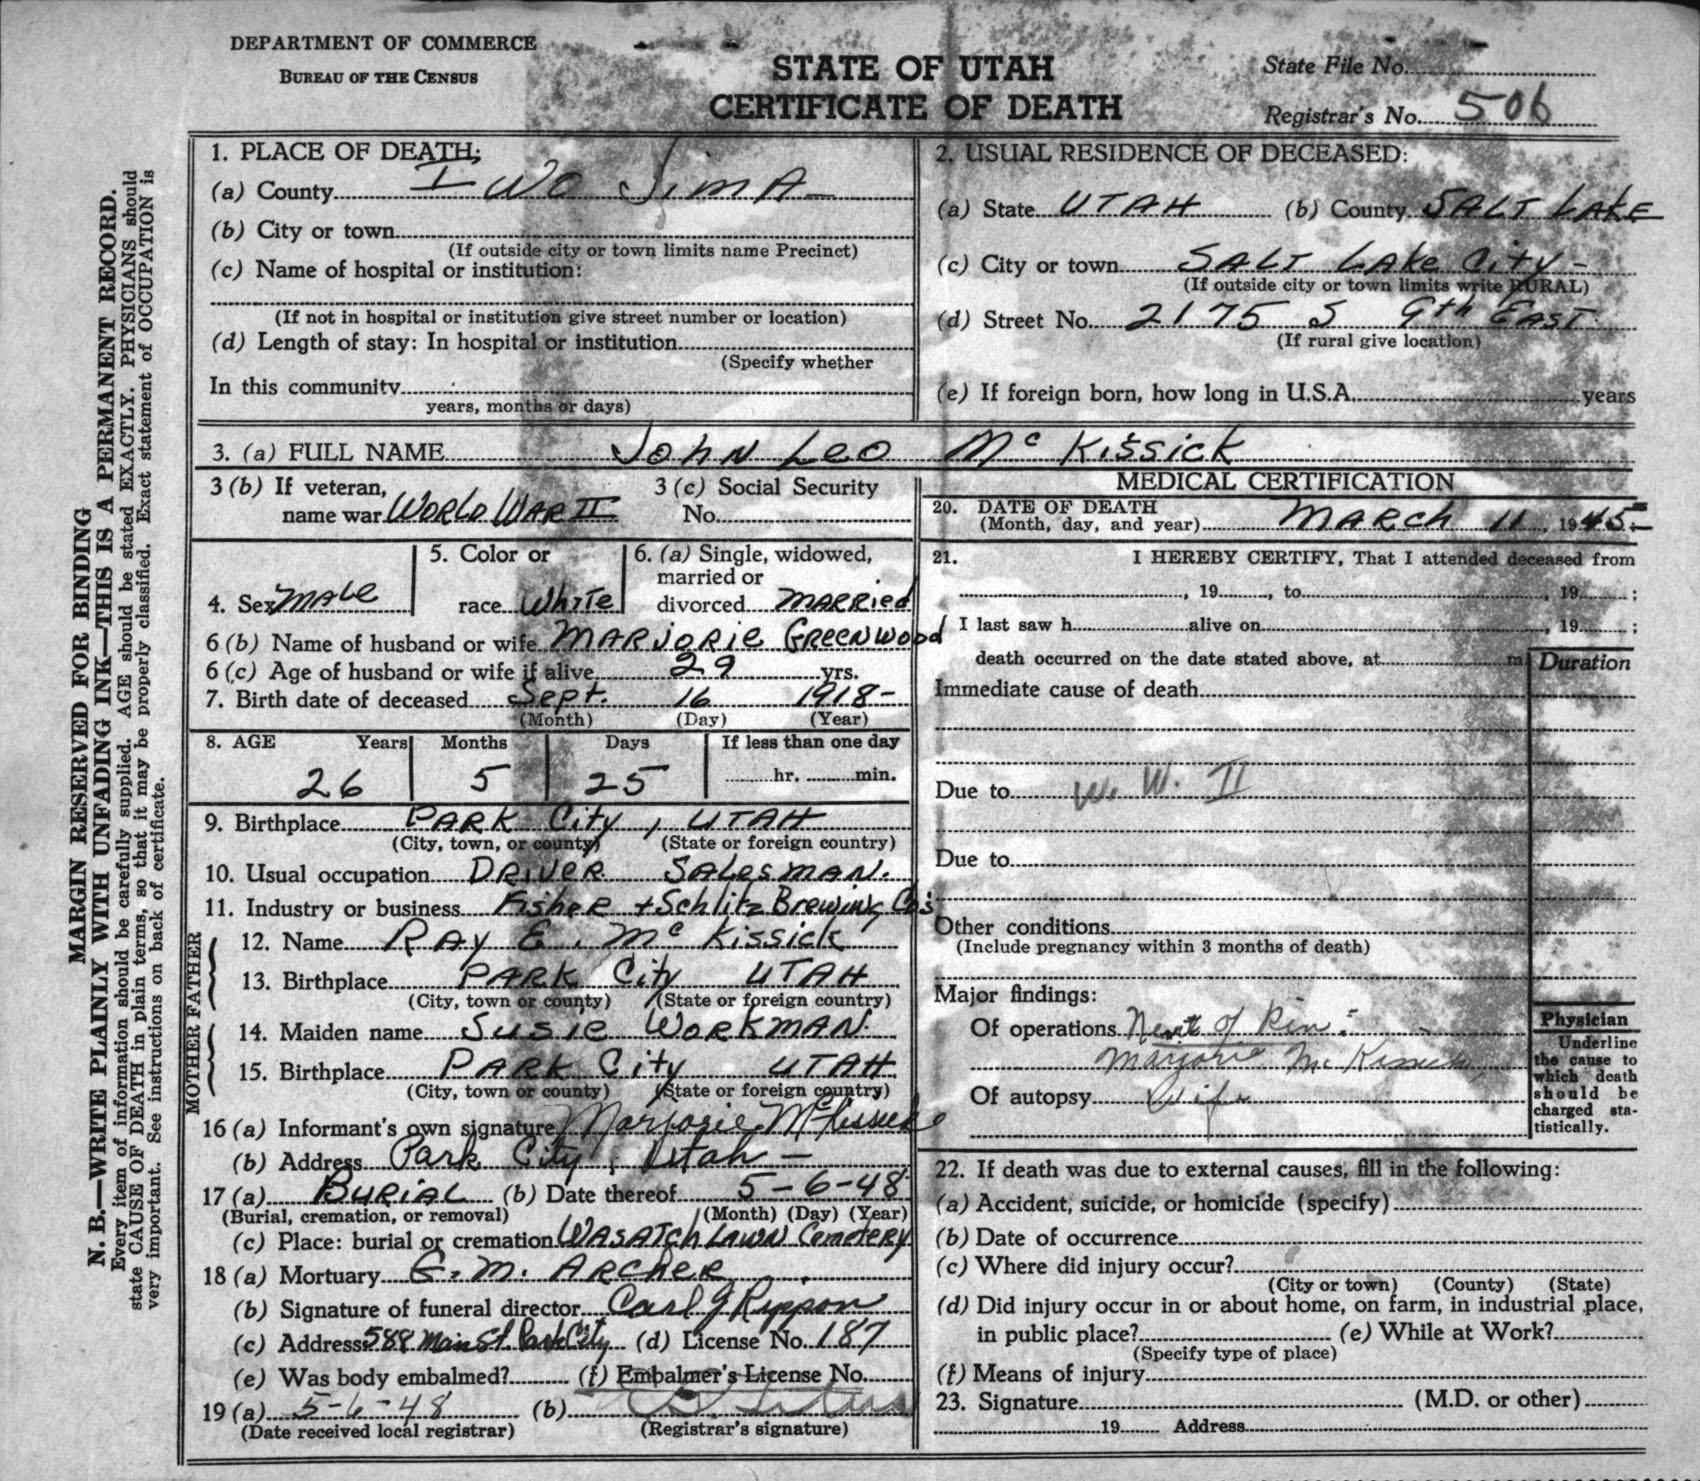 DEPARTMENT OF COMMERCE
BUREAU OF THE CENSUS
STATE OF UTAH
CERTIFICATE OF DEATH
State File No.
Registrar's No. 506
MARGIN RESERVED FOR BINDING
N. B.—WRITE PLAINLY WITH UNFADING INK—THIS IS A PERMANENT RECORD.
Every item of information should be carefully supplied. AGE should be stated EXACTLY. PHYSICIANS should
state CAUSE OF DEATH in plain terms, so that it may be properly classified. Exact statement of OCCUPATION is
very important. See instructions on back of certificate.
1. PLACE OF DEATH:
(a) County IWO JIMA
(b) City or town
(If outside city or town limits name Precinct)
(c) Name of hospital or institution:
(If not in hospital or institution give street number or location)
(d) Length of stay: In hospital or institution
(Specify whether
In this community
years, months or days)
2. USUAL RESIDENCE OF DECEASED:
(a) State UTAH (b) County SALT LAKE
(c) City or town SALT LAKE City -
(If outside city or town limits write RURAL)
(d) Street No. 2175 S 9th EAST
(If rural give location)
(e) If foreign born, how long in U.S.A. years
3. (a) FULL NAME JOHN LEO McKISSICK
3 (b) If veteran,
name war WORLD WAR II
3 (c) Social Security
No.
4. Sex MALE
5. Color or
race White
6. (a) Single, widowed,
married or
divorced MARRIED
6 (b) Name of husband or wife MARJORIE GREENWOOD
6 (c) Age of husband or wife if alive 29 yrs.
7. Birth date of deceased Sept. 16 1918-
(Month) (Day) (Year)
8. AGE Years Months Days If less than one day
26 5 25 hr. min.
9. Birthplace PARK City, UTAH
(City, town, or county) (State or foreign country)
10. Usual occupation DRIVER SALESMAN.
11. Industry or business Fisher + Schlitz Brewing Co's
FATHER
12. Name RAY E. McKISSICK
13. Birthplace PARK City UTAH
(City, town or county) (State or foreign country)
MOTHER
14. Maiden name SUSIE WORKMAN
15. Birthplace PARK City UTAH
(City, town or county) (State or foreign country)
16 (a) Informant's own signature Marjorie McKissick
(b) Address Park City, Utah -
17 (a) BURIAL (b) Date thereof 5-6-48
(Burial, cremation, or removal) (Month) (Day) (Year)
(c) Place: burial or cremation WASATCH LAWN CEMETERY
18 (a) Mortuary G. M. ARCHER
(b) Signature of funeral director Carl J Rippon
(c) Address 588 Main St. Park City (d) License No. 187
(e) Was body embalmed? (f) Embalmer's License No.
19 (a) 5-6-48 (b)
(Date received local registrar) (Registrar's signature)
MEDICAL CERTIFICATION
20. DATE OF DEATH
(Month, day, and year) MARCH 11, 1945
21. I HEREBY CERTIFY, That I attended deceased from
, 19 , to , 19 ;
I last saw h alive on , 19 ;
death occurred on the date stated above, at m
Duration
Immediate cause of death
Due to W. W. II
Due to
Other conditions
(Include pregnancy within 3 months of death)
Major findings:
Of operations Next of Kin:
Marjorie McKissick
Of autopsy Wife
Physician
Underline
the cause to
which death
should be
charged sta-
tistically.
22. If death was due to external causes, fill in the following:
(a) Accident, suicide, or homicide (specify)
(b) Date of occurrence
(c) Where did injury occur?
(City or town) (County) (State)
(d) Did injury occur in or about home, on farm, in industrial place,
in public place? (e) While at Work?
(Specify type of place)
(f) Means of injury
23. Signature (M.D. or other)
19 Address